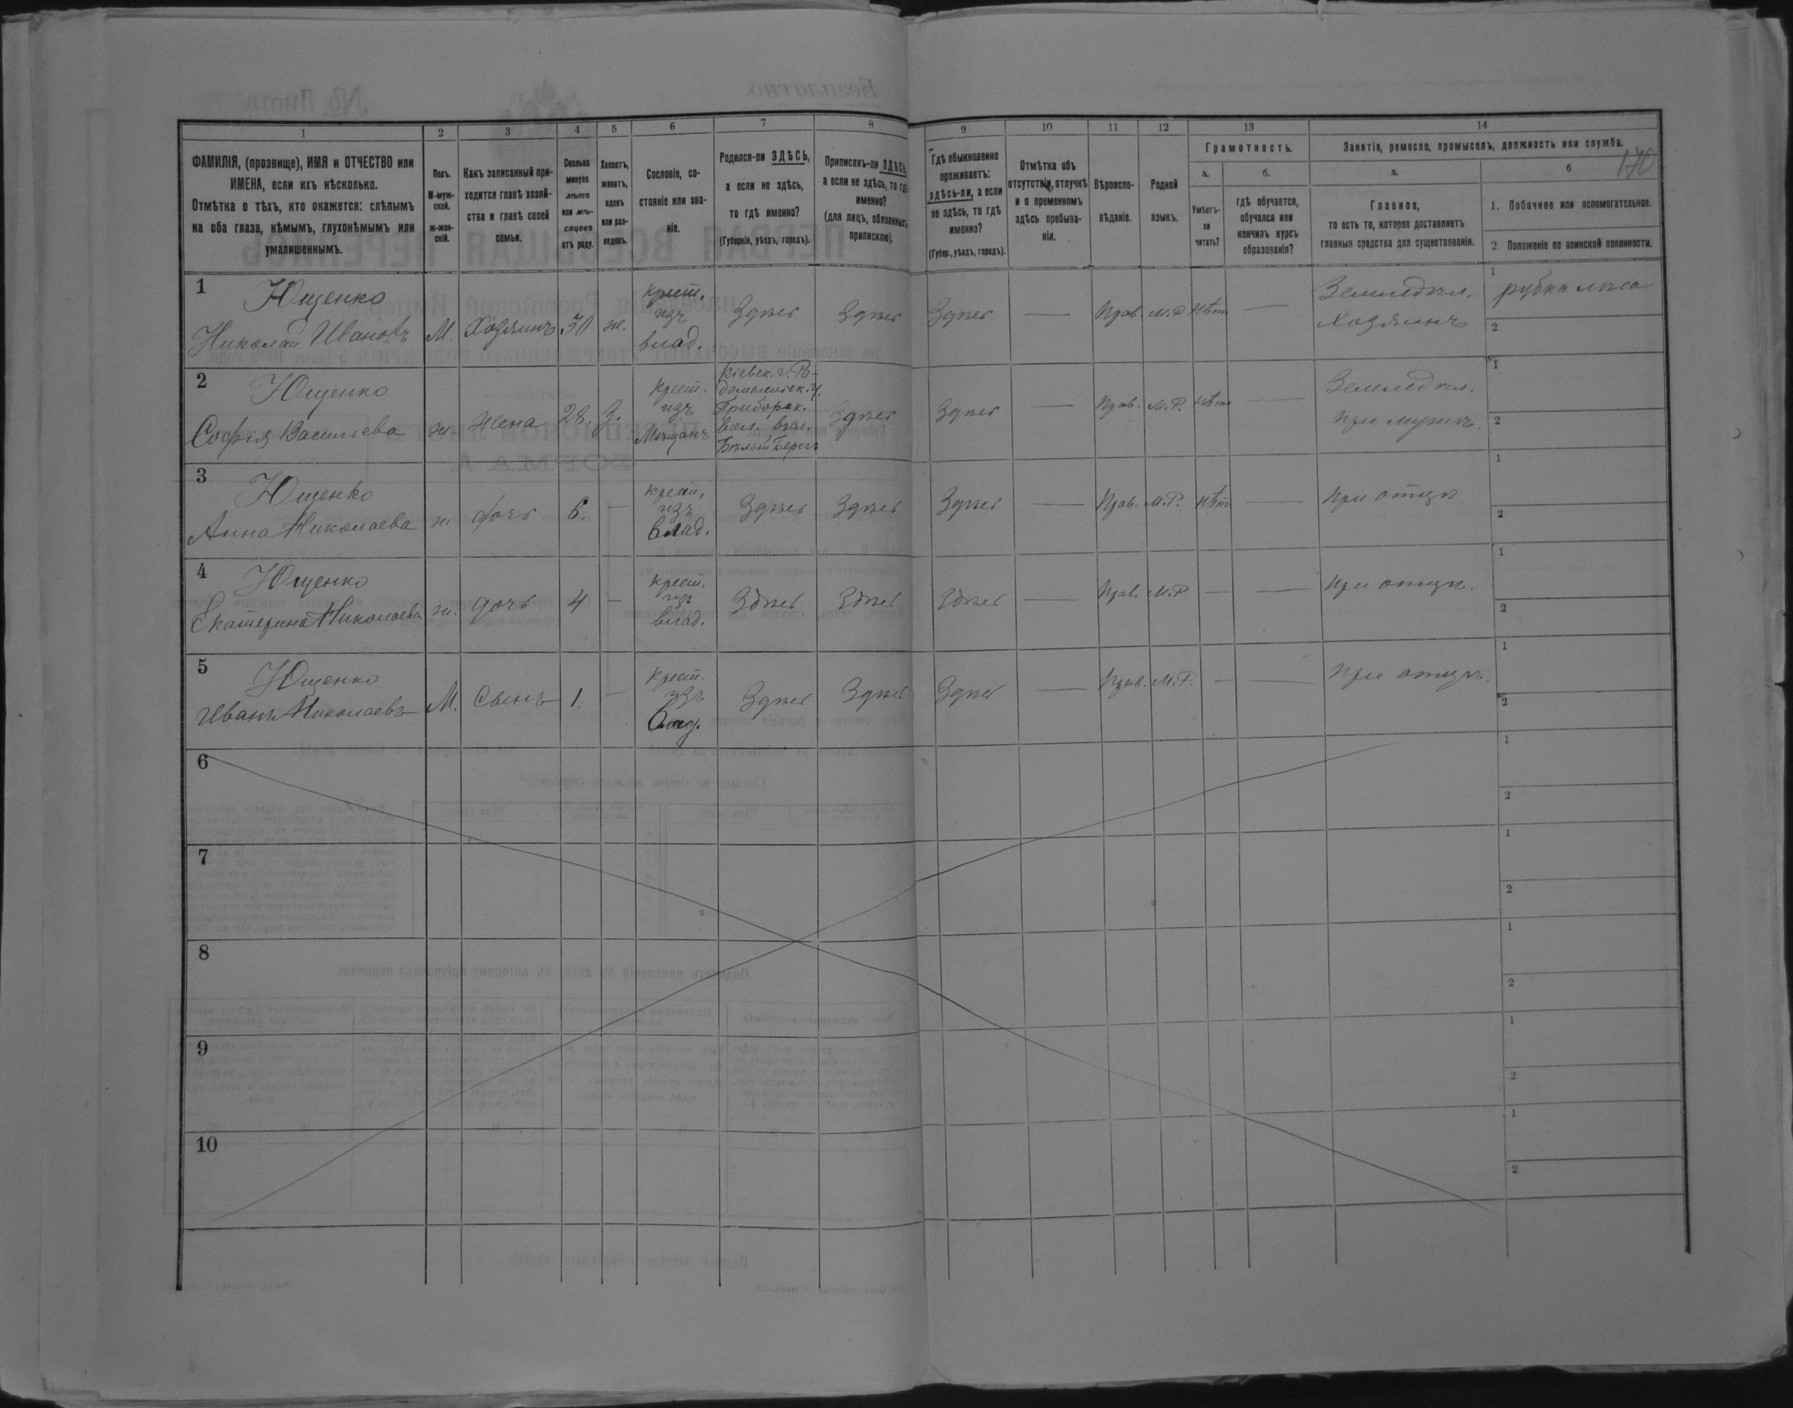 170
1 2 3 4 5 6 7 8 9 10 11 12 13 14
ФАМИЛІЯ, (прозвище), ИМЯ и ОТЧЕСТВО или
ИМЕНА, если ихъ нѣсколько.
Отмѣтка о тѣхъ, кто окажется: слѣпымъ
на оба глаза, нѣмымъ, глухонѣмымъ или
умалишеннымъ.
Полъ.
М-муж-
ской.
ж-жен-
скій.
Какъ записанный при-
ходится главѣ хозяй-
ства и главѣ своей
семьи.
Сколько
минуло
лѣтъ
или мѣ-
сяцевъ
отъ роду.
Холостъ,
женатъ,
вдовъ
или раз-
веденъ.
Сословіе, со-
стояніе или зва-
ніе.
Родился-ли ЗДѢСЬ,
а если не здѣсь,
то гдѣ именно?
(Губернія, уѣздъ, городъ).
Приписанъ-ли ЗДѢСЬ,
а если не здѣсь, то гдѣ
именно?
(для лицъ, обязанныхъ
припискою).
Гдѣ обыкновенно
проживаетъ:
здѣсь-ли, а если
не здѣсь, то гдѣ
именно?
(Губер., уѣздъ, городъ).
Отмѣтка объ
отсутствіи, отлучкѣ
и о временномъ
здѣсь пребыва-
ніи.
Вѣроиспо-
вѣданіе.
Родной
языкъ.
Грамотность.
а.
Умѣетъ-
ли
читать?
б.
гдѣ обучается,
обучался или
кончилъ курсъ
образованія?
Занятіе, ремесло, промыселъ, должность или служба.
а.
Главное,
то есть то, которое доставляетъ
главныя средства для существованія.
б
1. Побочное или вспомогательное.
2. Положеніе по воинской повинности.
1 Ющенко
Николай Ивановъ М. Хозяинъ 30 ж. крест. изъ влад. Здѣсь Здѣсь Здѣсь — Прав. М.Р. нѣтъ — Земледѣл. Хозяинъ 1 рубка лѣса
2
2 Ющенко
Софія Васильева ж. жена 28. З. крест. изъ Мѣщанъ Кіевск. г. Ра-
домысльск. у.
Приборск.
вол.
Бѣлый Берегъ Здѣсь Здѣсь — Прав. М.Р. нѣтъ — Земледѣл. при мужѣ. 1
2
3 Ющенко
Анна Николаева ж дочь 6. — крест. изъ влад. Здѣсь Здѣсь Здѣсь — Прав. М.Р. нѣтъ — при отцѣ 1
2
4 Ющенко
Екатерина Николаева ж. дочь 4 — крест. изъ влад. Здѣсь Здѣсь Здѣсь — Прав. М.Р — — при отцѣ. 1
2
5 Ющенко
Иванъ Николаевъ М. Сынъ 1. — крест. изъ влад. Здѣсь Здѣсь Здѣсь — Прав. М.Р. — — при отцѣ. 1
2
6 1
2
7 1
2
8 1
2
9 1
2
10 1
2